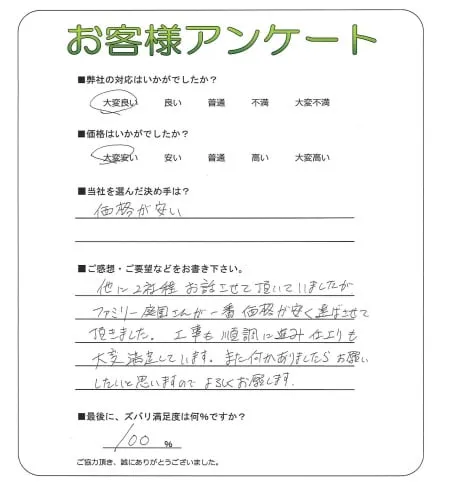 お客様アンケート
■弊社の対応はいかがでしたか？
大変良い　良い　普通　不満　大変不満
■価格はいかがでしたか？
大変安い　安い　普通　高い　大変高い
■当社を選んだ決め手は？
価格が安い
■ご感想・ご要望などをお書き下さい。
他に2社程 お話させて頂いていましたが
ファミリー庭園さんが一番 価格が安く選ばせて
頂きました。工事も順調に進み仕上りも
大変満足しています。また何かありましたらお願い
したいと思いますので よろしくお願します.
■最後に、ズバリ満足度は何％ですか？
100 ％
ご協力頂き、誠にありがとうございました。